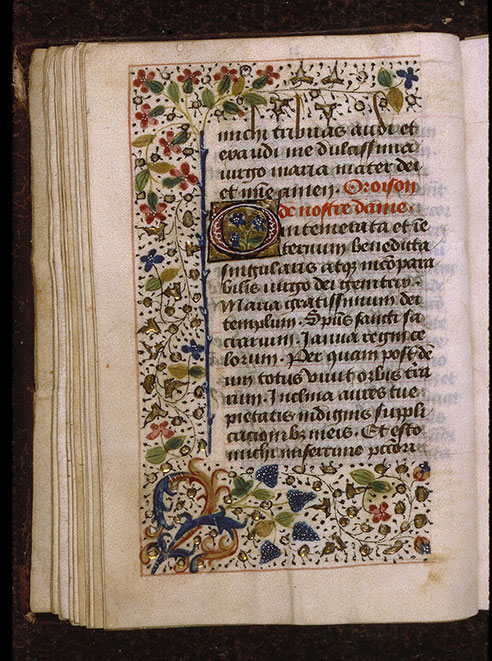 michi tribuas audi et
exaudi me dulcissima
virgo maria mater dei
et mie amen. Oroison
de nostre dame.
O intemerata et i e
ternum benedicta
singularis atqz incōpara
bilis virgo dei genitrix
Maria gratissimum dei
templum. Spūs sancti sa
crarium. Janua regni ce
lorum. Per quam post de
um totus vivit orbis tra
rum. Inclina aures tue
pietatis indignis suppli
cacionibz meis. Et esto
michi miserrimo pctori